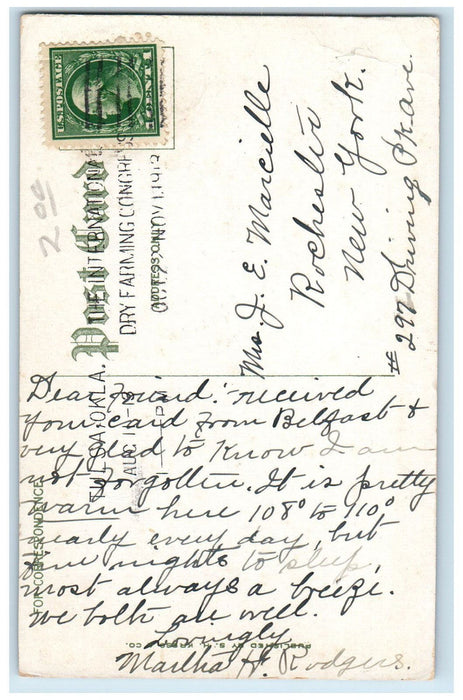 U.S. POSTAGE
1 CENT
Post Card
ADDRESS ONLY
THE INTERNATIONAL
DRY FARMING CONGRESS
NOV. 1, 1913
TULSA, OKLA.
AUG
2 00
Mrs J. E. Marcielle
Rochester
New York.
# 297 Driving Pk ave.
FOR CORRESPONDENCE
Dear Friend:- received
your card from Belfast &
very glad to know I am
not forgotten. It is pretty
warm here 108° to 110°
nearly every day, but
fine nights to sleep,
most always a breeze.
we both are well.
Lovingly
Martha H. Rodgers.
PUBLISHED BY S. H. KRESS & CO.